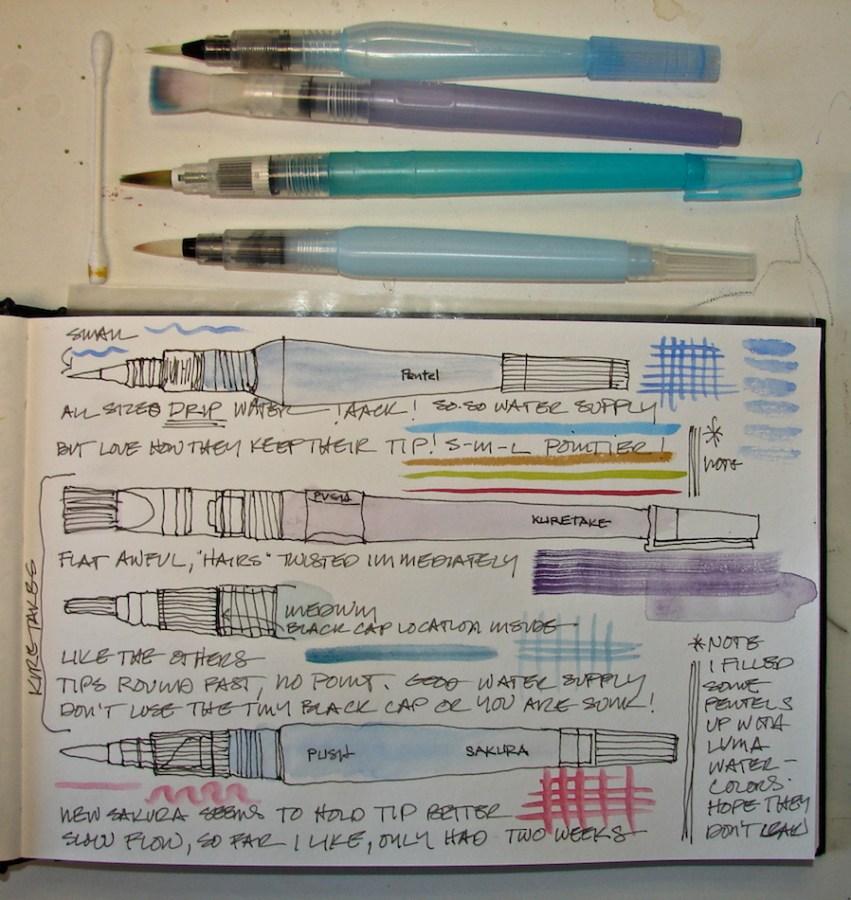 SMALL
Pentel
ALL SIZES DRIP WATER !AACK! SO-SO WATER SUPPLY
BUT LOVE HOW THEY KEEP THEIR TIP! S-M-L POINTIER!
* NOTE
PUSH
KURETAKE
FLAT AWFUL, "HAIRS" TWISTED IMMEDIATELY
KURETAKES
MEDIUM
BLACK CAP LOCATION INSIDE
LIKE THE OTHERS
TIPS ROUND FAST, NO POINT. GOOD WATER SUPPLY
DON'T LOSE THE TINY BLACK CAP OR YOU ARE SUNK!
PUSH
SAKURA
NEW SAKURA SEEMS TO HOLD TIP BETTER
SLOW FLOW, SO FAR I LIKE, ONLY HAD TWO WEEKS
*NOTE
I FILLED
SOME
PENTELS
UP WITH
LUMA
WATER-
COLORS.
HOPE THEY
DON'T LEAK!